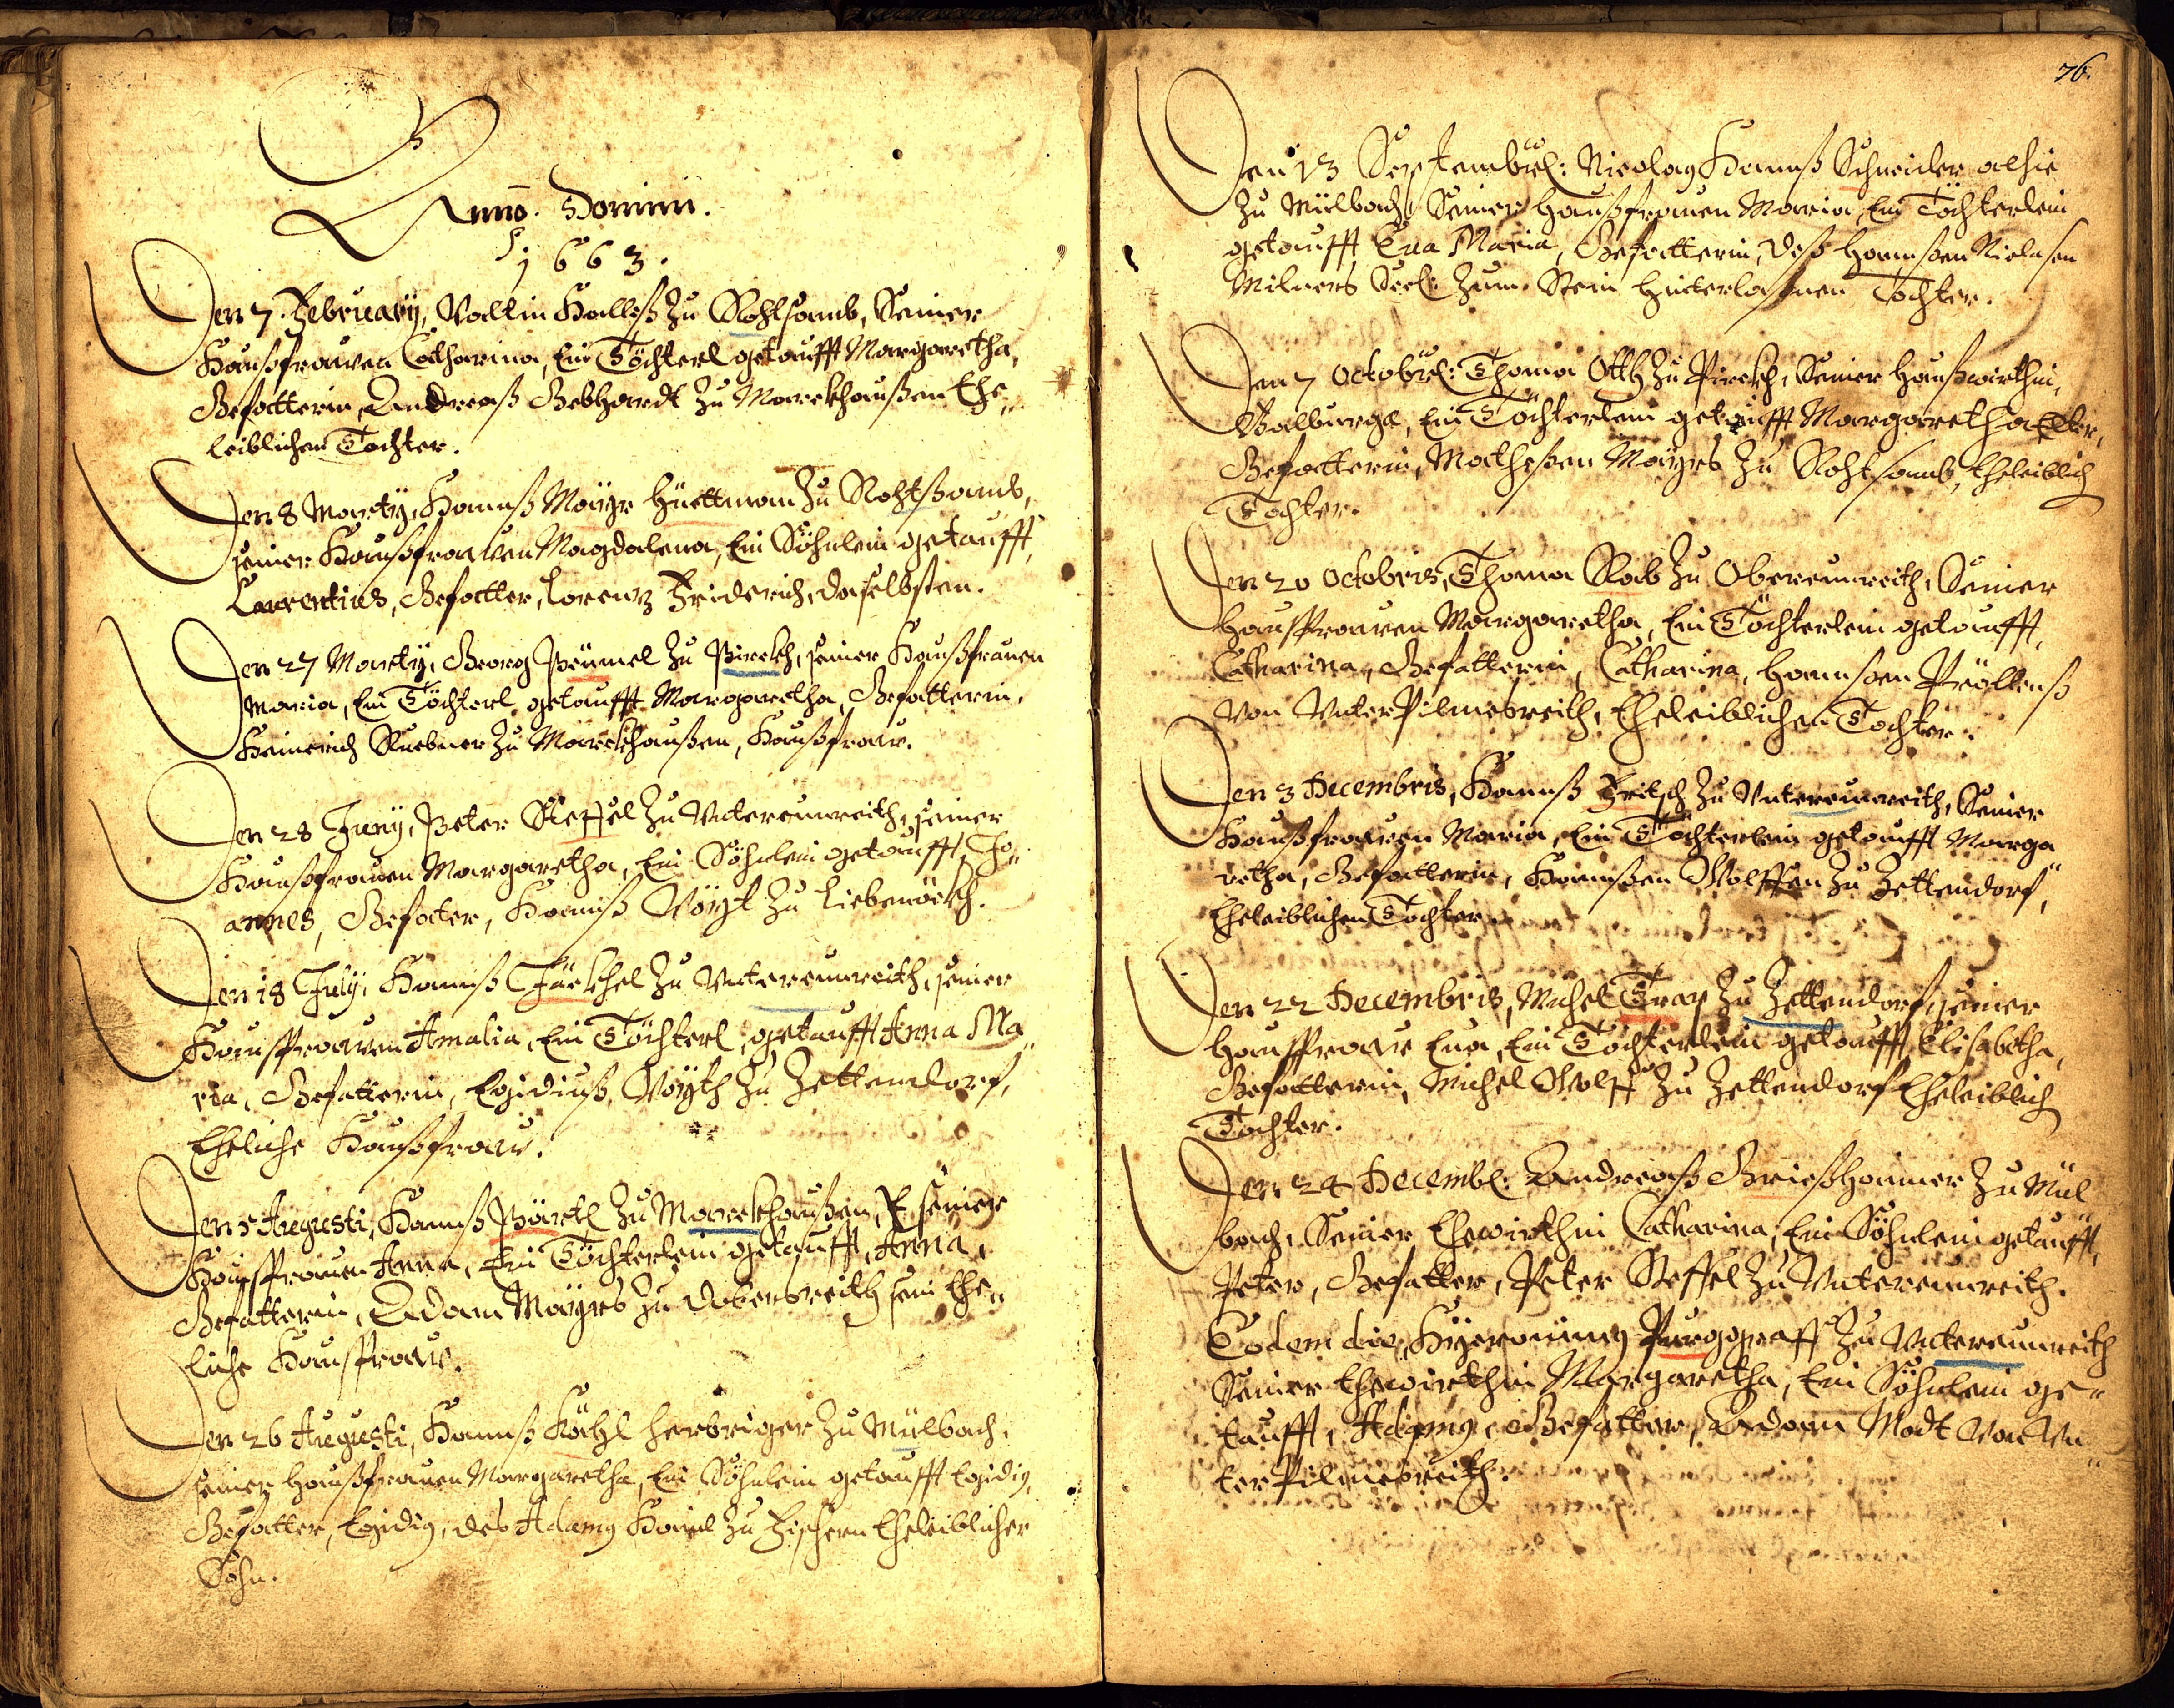 Anno. Domini.
1663.
Den 7. February, Vallin Halleß Zu Rohtsamb, Seiner
Haußfrawen Catharina, Ein Töchterl getaufft Margaretha,
Gefatterin, Andreaß Gebhardt Zu Marckhaußen Ehe„
leiblichen Tochter.
Den 8 Marty, Hannß Mayr Hüettman Zu Rohtßamb,
seiner Haußfrawen Magdalena, Ein Söhnlein getaufft,
Laurentius, Gefatter, Lorenz Friderich, daselbsten.
Den 27 Marty, Georg Peümel Zu Pirckh, seiner Haußfrauen
Maria, Ein Töchterl getaufft Margaretha, Gefatterin,
Heinrich Ruebner Zu Marckhaußen, Haußfraw.
Den 28 Juny, Peter Steffel Zu Untereunreith, seiner
Haußfrauen Margaretha, Ein Söhnlein getaufft, Jo„
annes, Gefater, Hannß Vöyt Zu Liebenöckh.
Den 18 July, Hannß Jäckhel Zu Untereunreith, seiner
Haußfrawen Amalia, Ein Töchterl, getaufft Anna Ma„
ria, Gefatterin, Egidiuß Voyth Zu Zettendorf,
Eheliche Haußfraw.
Den 5 Augusti, Hannß Pärtl Zu Marckhaußen, seiner
Haußfrauen Anna, Ein Töchterlein getaufft, Anna,
Gefatterin, Adam Mayrs Zu Dobersreith sein Ehe„
liche Haußfraw.
Den 26 Augusti, Hannß Köhl Herbriger Zu Mülbach,
seiner Haußfrauen Margaretha, Ein Söhnlein getaufft Egidig,
Gefatter, Egidig, des Adamg Hail Zu Fischern Eheleiblicher
Sohn.
76.
Den 13 September: Nicolaus Hannß Schneider alhie
Zu Mülbach, Seiner Haußfrauen Maria, Ein Töchterlein
getaufft Eva Maria, Gefatterin, deß Hannßen Niclasen
Milners Seel: Zum Stein hinterlaßnen Tochter.
Den 7 October: Thoma Otth Zu Pirckh, Seiner Haußwirthin,
Walburga, Ein Töchterlein getaufft Margaretha
Gefatterin, Matheßen Mayrs Zu Rohtsamb, Eheleiblich
Tochter.
Den 20 Octobris, Thoma Rab Zu Obereunreith, Seiner
Haußfrawen Margaretha, Ein Töchterlein getaufft,
Catharina, Gefatterin, Catharina, Hannsen Pröllenß
Von Unter Pilmesreith, Eheleiblichen Tochter.
Den 3 Decembris, Hannß Fritsch Zu Untereunreith, Seiner
Haußfrawen Maria, Ein Töchterlein getaufft Marga„
retha, Gefatterin, Hannßen Wolffen Zu Zettendorf,
Eheleiblichen Tochter.
Den 22 Decembris, Michel Trap Zu Zettendorf, seiner
Haußfraw Eva, Ein Töchterlein getaufft, Elisabetha,
Gefatterin, Michel Wolff Zu Zettendorf Eheleiblich
Tochter.
Den 24 Decemb: Andreaß Grießhamer Zu Mül„
bach, Seiner Ehewirthin Catharina, Ein Söhnlein getaufft,
Peter, Gefatter, Peter Steffel Zu Untereunreith.
Eodem die, Hyeronimg Purggraff Zu Untereunreith
Seiner Ehewirthin Margaretha, Ein Söhnlein ge„
taufft, Adamg, Gefatter, Adam Modt Von Un„
ter Pilmesreith.